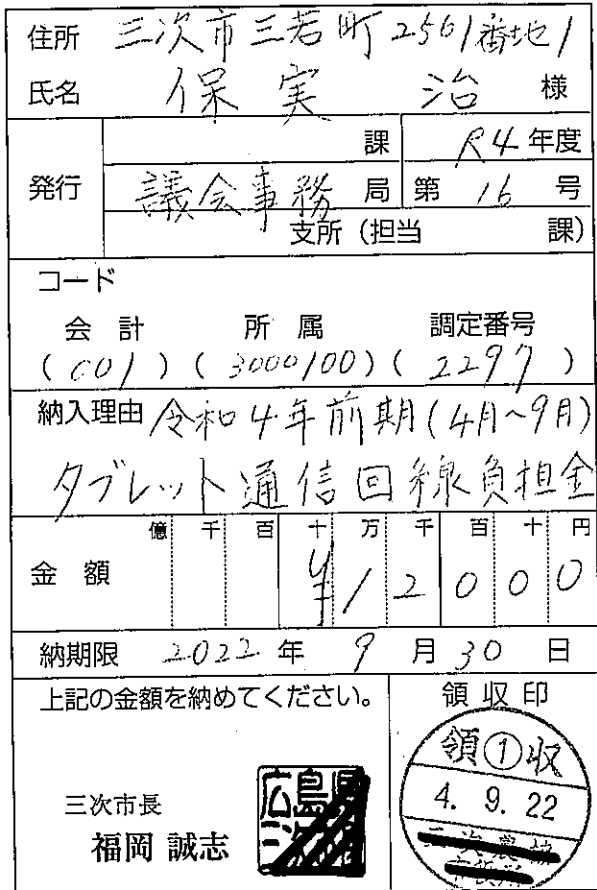 住所 三次市三若町2561番地1
氏名 保実 治 様
発行
課 R4年度
議会事務局 第 16 号
支所(担当 課)
コード
会計 所属 調定番号
(001)(3000100)(2297)
納入理由 令和4年前期(4月~9月)
タブレット通信回線負担金
億 千 百 十 万 千 百 十 円
金額 ¥12000
納期限 2022年 9月30日
上記の金額を納めてください。
領収印
三次市長
福岡 誠志
広島県
領①収
4. 9. 22